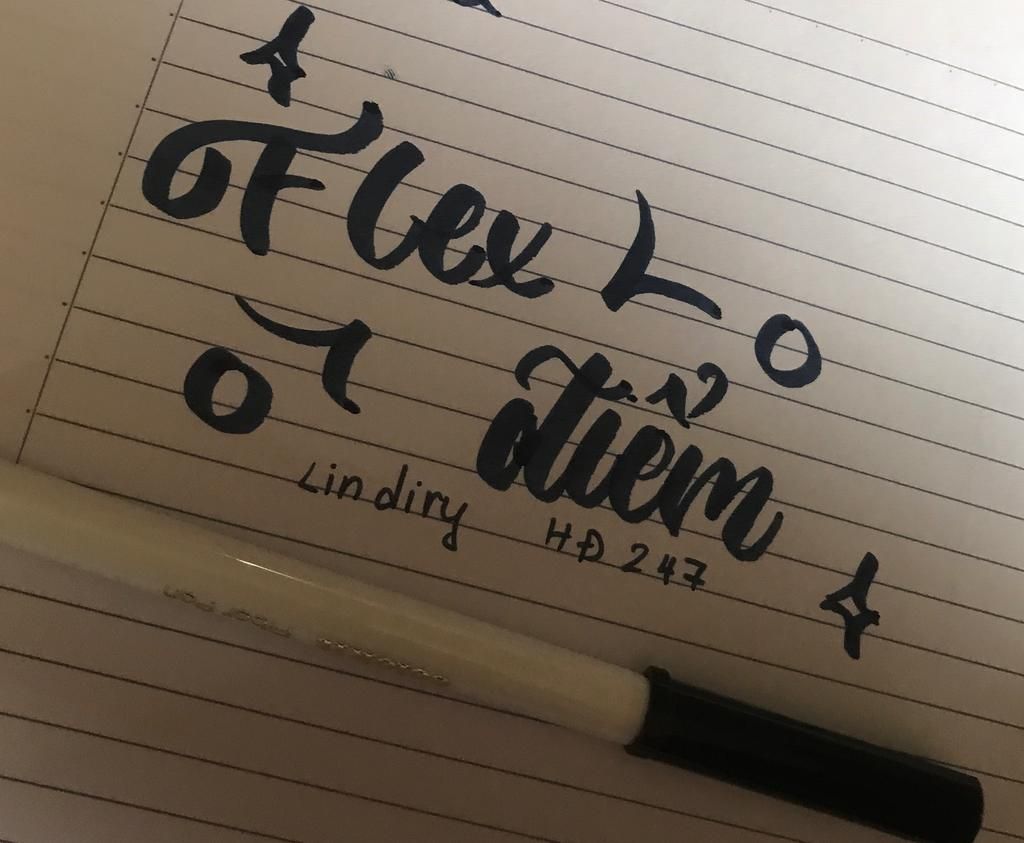 Flex
điểm
Lindiry
HĐ 247